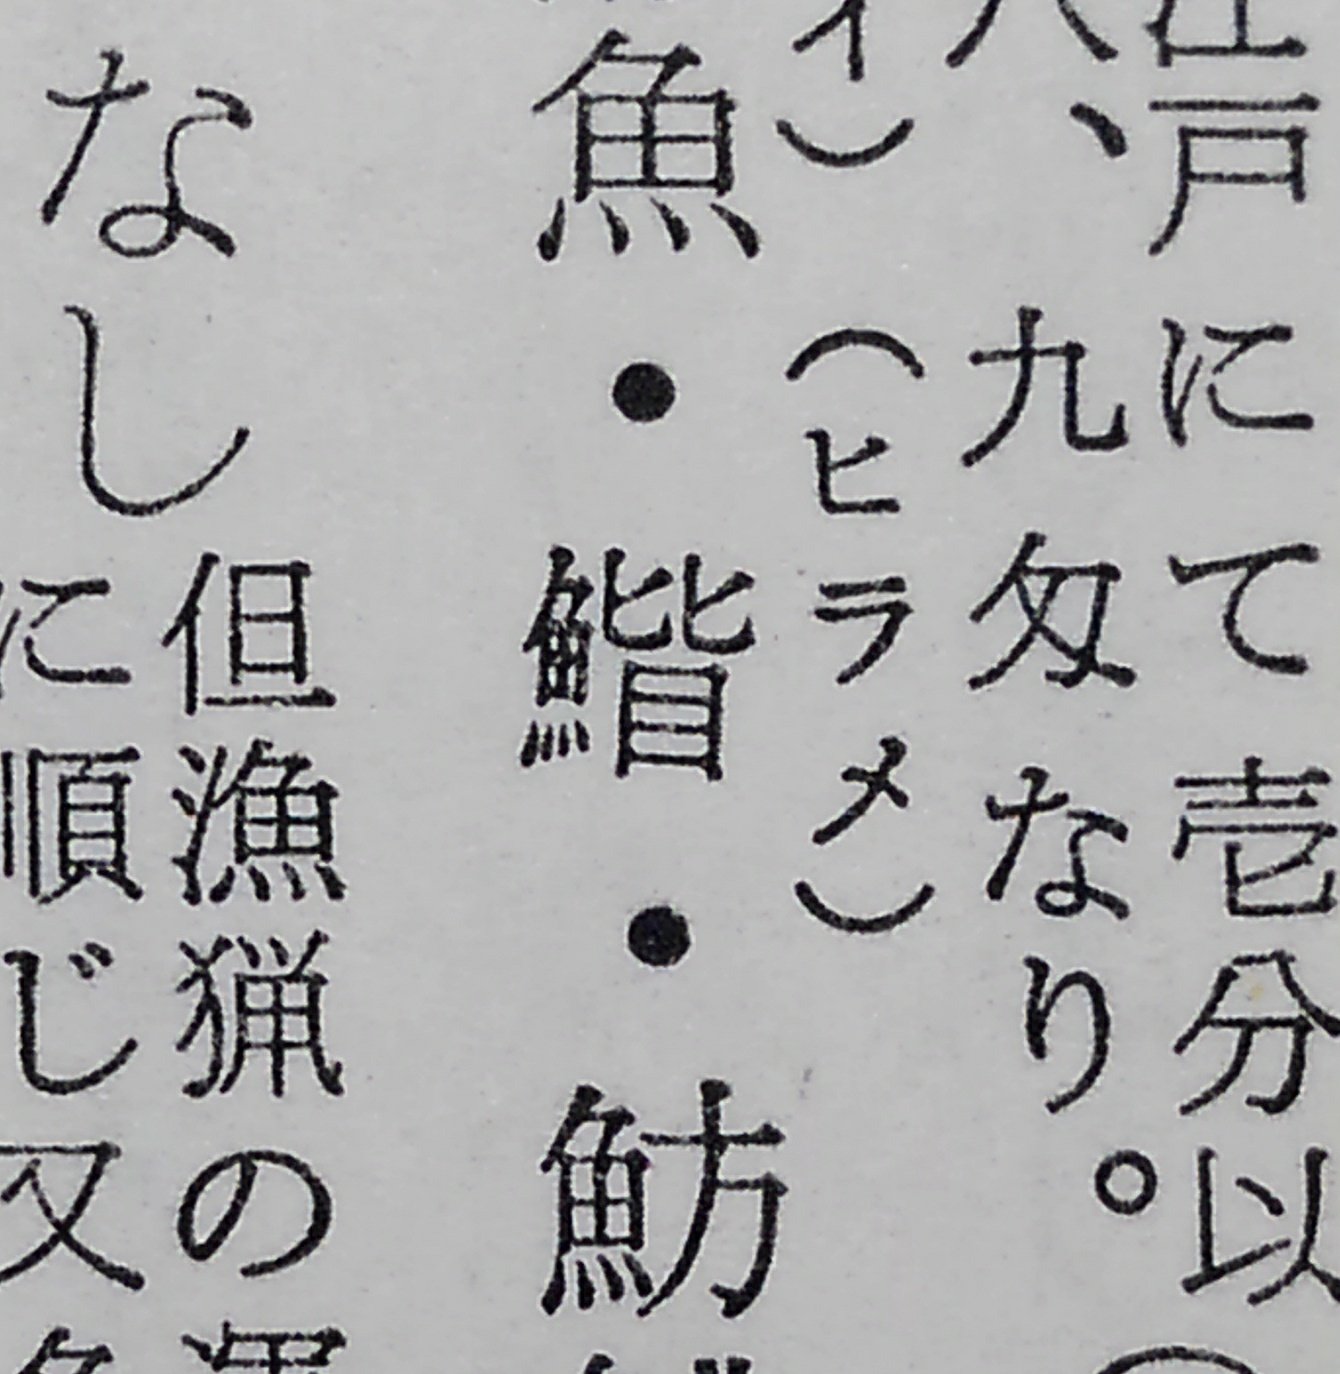 江戸にて壱分以
八、九匁なり。
イ)(ヒラメ)
魚・・魴
なし
但漁猟の
に順じ又